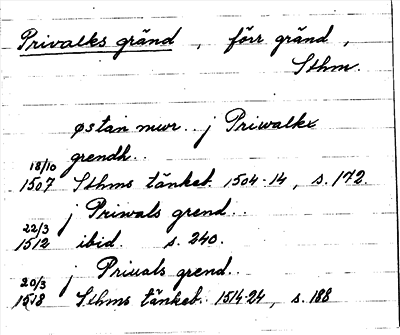 Privalks gränd, förr gränd,
Sthm.
østan mur.. j Priwalkx
grendh..
18/10
1507 Sthms tänkeb. 1504-14, s. 172.
j Priwals grend..
22/3
1512 ibid. s. 240.
j Priuals grend..
20/3
1518 Sthms tänkeb. 1514-24, s. 188